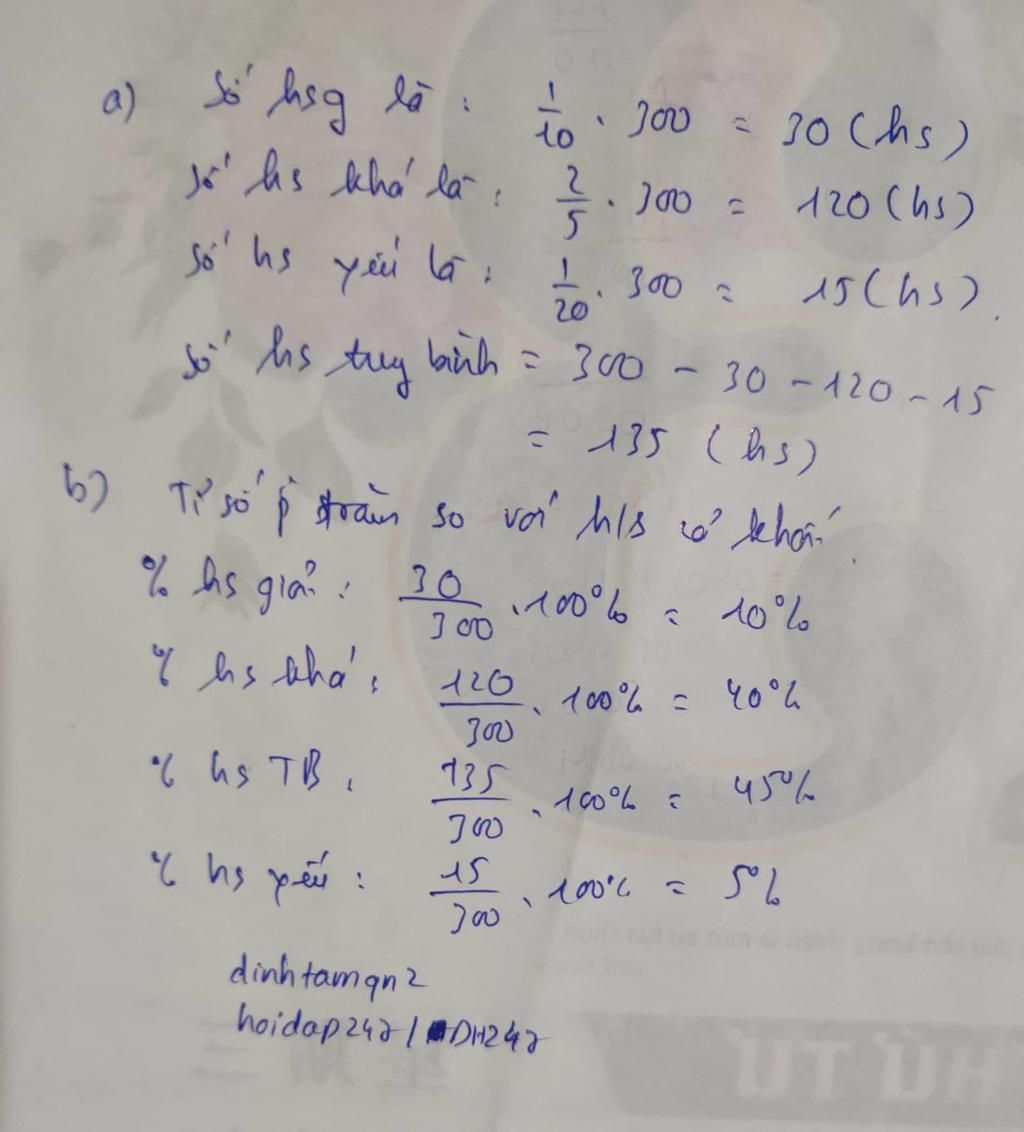 a) Số hsg là : 1/10 . 300 = 30 (hs)
số hs khá là : 2/5 . 300 = 120 (hs)
số hs yếu là : 1/20 . 300 = 15 (hs).
số hs trug bình = 300 - 30 - 120 - 15
= 135 (hs)
b) Tỉ số p trăm so với h/s cả khối.
% hs giỏi : 30/300 . 100% = 10%
% hs khá : 120/300 . 100% = 40%
% hs TB . 135/300 . 100% = 45%
% hs yếu : 15/300 . 100% = 5%
dinhtamqn2
hoidap247 / DH247
THỨ TƯ
星期三